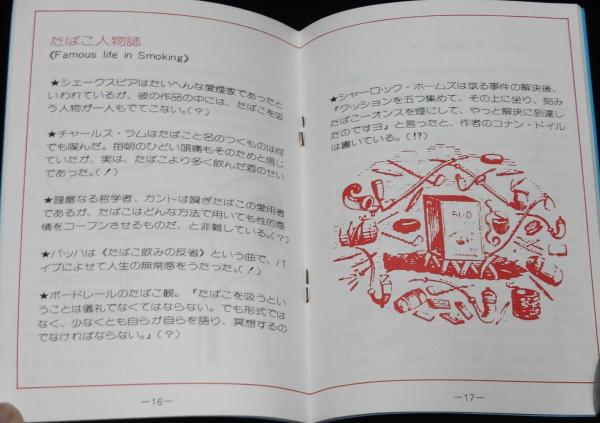 たばこ人物誌
《Famous life in Smoking》
★シェークスピアはたいへんな愛煙家であったと
いわれているが、彼の作品の中には、たばこを吸
う人物が一人もでてこない。(?)
★チャールス・ラムはたばこと名のつくものは何
でも喫んだ。毎朝のひどい頭痛もそのためと信じ
ていたが、実は、たばこより多く飲んだ酒のせい
であった。(!)
★謹厳なる哲学者、カントは嗅ぎたばこの愛用者
であるが、たばこはどんな方法で用いても性的感
情をコーフンさせるものだ、と非難している。(?)
★バッハは《たばこ飲みの反省》という曲で、パ
イプによせて人生の無常感をうたった。(!)
★ボードレールのたばこ観。『たばこを吸うとい
うことは儀礼でなくてはならない。でも形式では
なく、少なくとも自らが自らを語り、冥想するの
でなければならない。』(?)
—16—
★シャーロック・ホームズは或る事件の解決後、
『クッションを五つ集めて、その上に坐り、刻み
たばこ一オンスを煙にして、やっと解決に到達し
たのですヨ』と言ったと、作者のコナン・ドイル
は書いている。(!?)
—17—